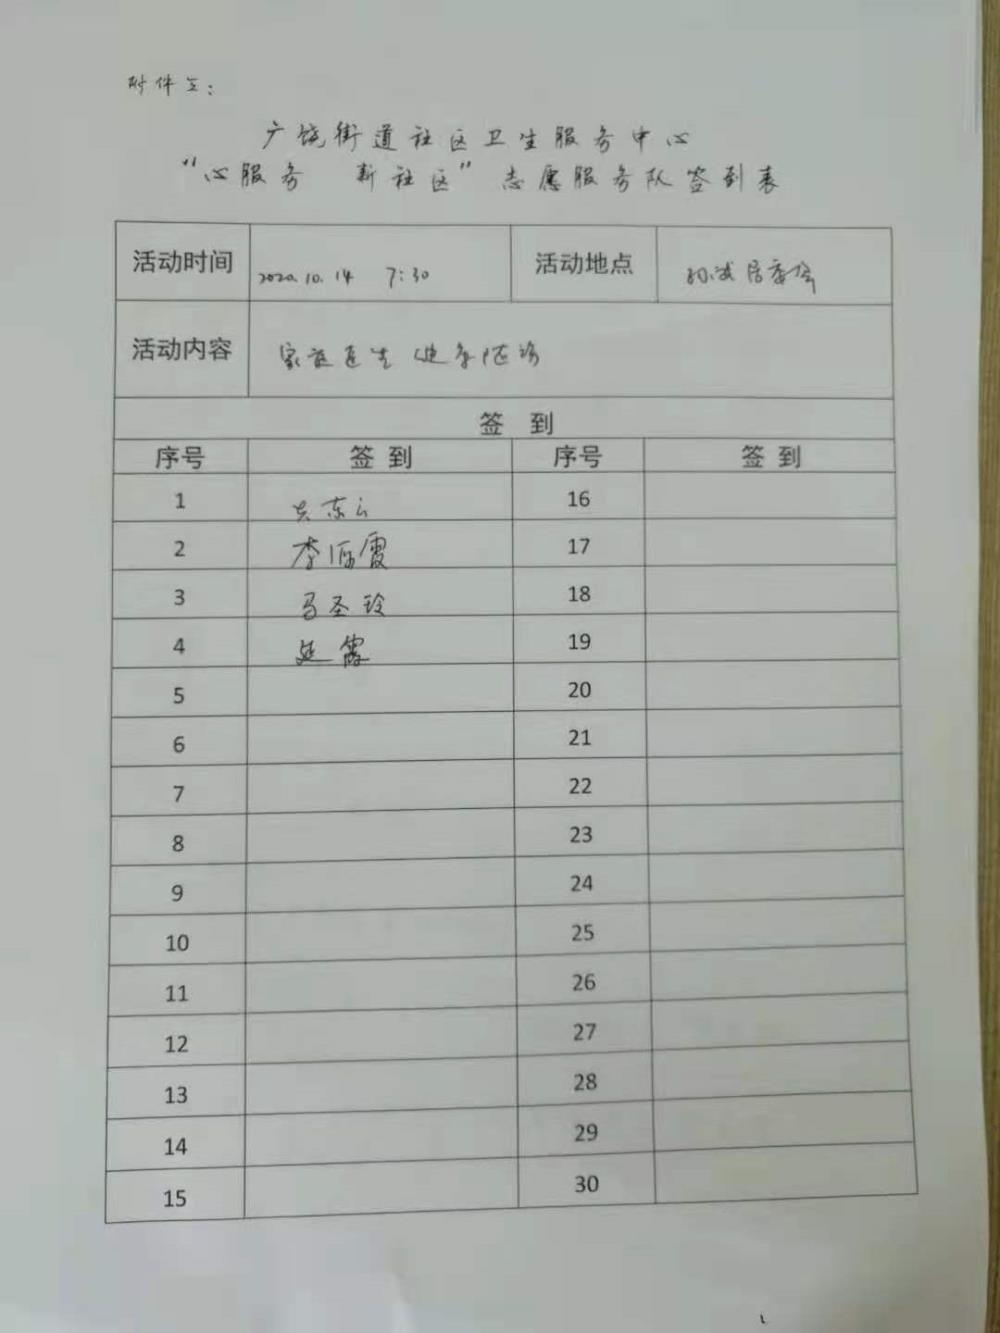 附件五：
广饶街道社区卫生服务中心
“心服务 新社区”志愿服务队签到表
活动时间 2020.10.14 7:30 活动地点 居委会
活动内容 家庭医生 健康巡诊
签 到
序号 签到 序号 签到
1 东云 16
2 李 霞 17
3 马圣玲 18
4 延霞 19
5 20
6 21
7 22
8 23
9 24
10 25
11 26
12 27
13 28
14 29
15 30